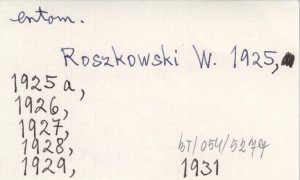 entom.
Roszkowski W. 1925,
1925a,
1926,
1927,
1928,
1929,
1931